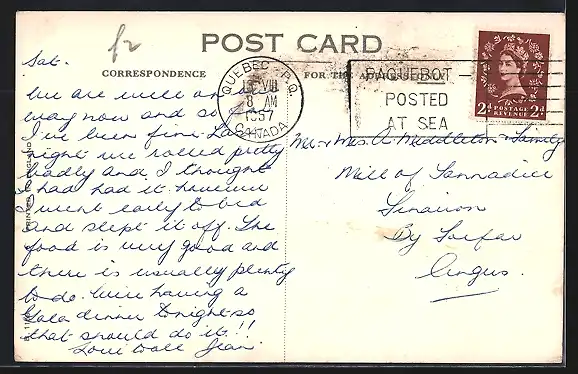 £2
POST CARD
CORRESPONDENCE
FOR THE ADDRESS ONLY
Sat.
We are well on our
way now and so far
I've been fine. Last
night we rolled pretty
badly and I thought
I had had it. however
I went early to bed
and slept it off. The
food is very good and
there is usually plenty
to do. We're having a
Gala dinner tonight so
that should do it!!
Love to all Jean.
QUEBEC P.Q.
VIII
8 AM
1957
CANADA
PAQUEBOT
POSTED
AT SEA
2d POSTAGE REVENUE 2d
Mr & Mrs A. Middleton & Family
Mill of
By Forfar
Angus.
PRINTED IN ENGLAND